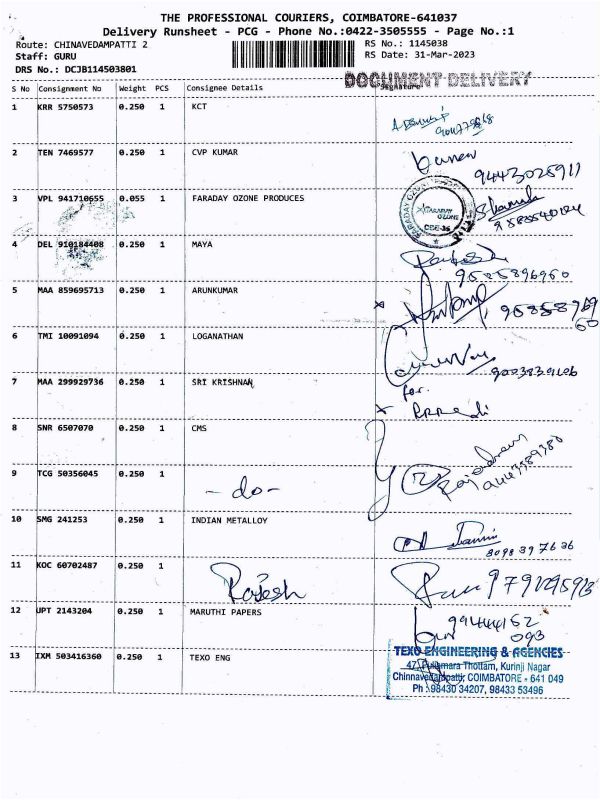 THE PROFESSIONAL COURIERS, COIMBATORE-641037
Delivery Runsheet - PCG - Phone No.:0422-3505555 - Page No.:1
Route: CHINAVEDAMPATTI 2 RS No.: 1145038
Staff: GURU RS Date: 31-Mar-2023
DRS No.: DCJB114503801 DOCUMENT DELIVERY
S No Consignment No Weight PCS Consignee Details Signature
1 KRR 5750573 0.250 1 KCT
2 TEN 7469577 0.250 1 CVP KUMAR
9443025911
3 VPL 941710655 0.055 1 FARADAY OZONE PRODUCES
FARADAY OZONE
CBE-35
4 DEL 910184408 0.250 1 MAYA
9585896960
5 MAA 859695713 0.250 1 ARUNKUMAR
6 TMI 10091094 0.250 1 LOGANATHAN
7 MAA 299929736 0.250 1 SRI KRISHNAN
for
8 SNR 6507070 0.250 1 CMS
9 TCG 50356045 0.250 1 - do -
10 SMG 241253 0.250 1 INDIAN METALLOY
8098397636
11 KOC 60702487 0.250 1 Rajesh
12 UPT 2143204 0.250 1 MARUTHI PAPERS
99444152
093
13 IXM 503416360 0.250 1 TEXO ENG
TEXO ENGINEERING & AGENCIES
47, Pulamara Thottam, Kurinji Nagar
Chinnavedampatti, COIMBATORE - 641 049
Ph : 98430 34207, 98433 53496